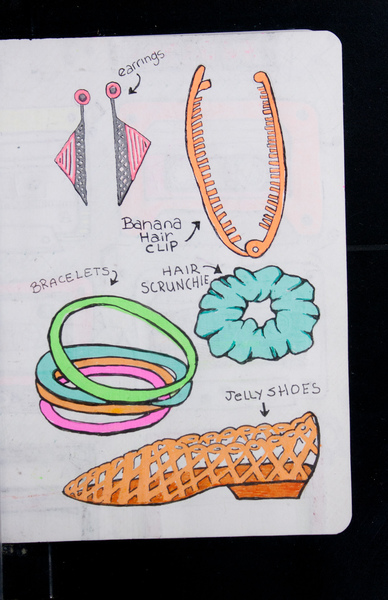 earrings
Banana
Hair
CLIP
BRACELETS
HAIR
SCRUNCHIE
JeLLY SHOES